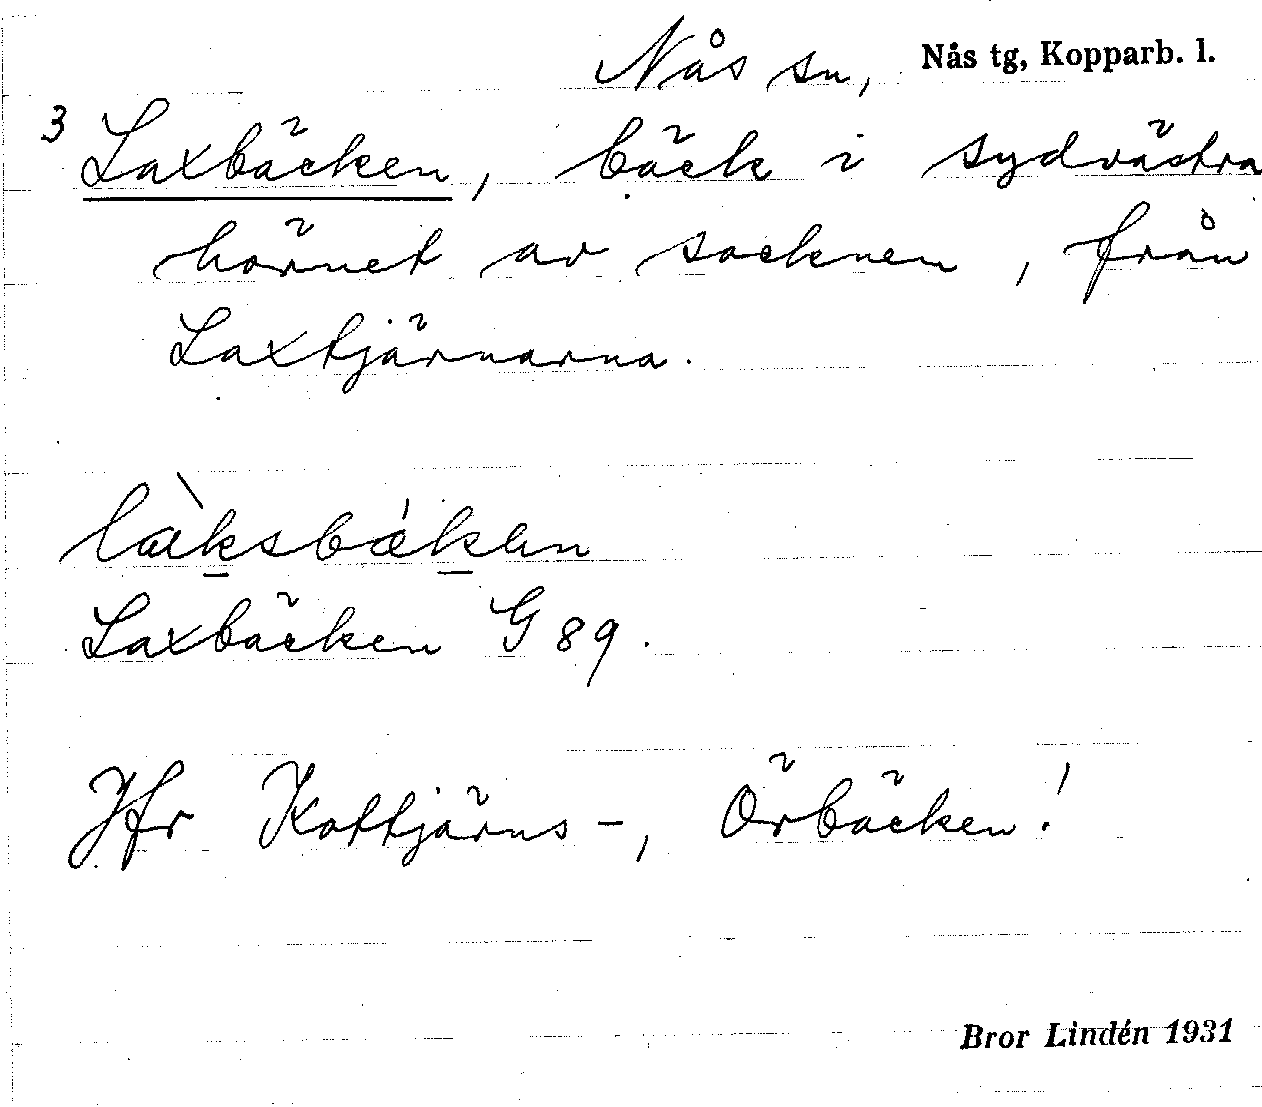 Nås sn, Nås tg, Kopparb. l.
3 Laxbäcken, bäck i sydvästra
hörnet av socknen, från
Laxtjärnarna.
làksbákan
Laxbäcken G 89.
Jfr Kottjärns-, Örbäcken!
Bror Lindén 1931